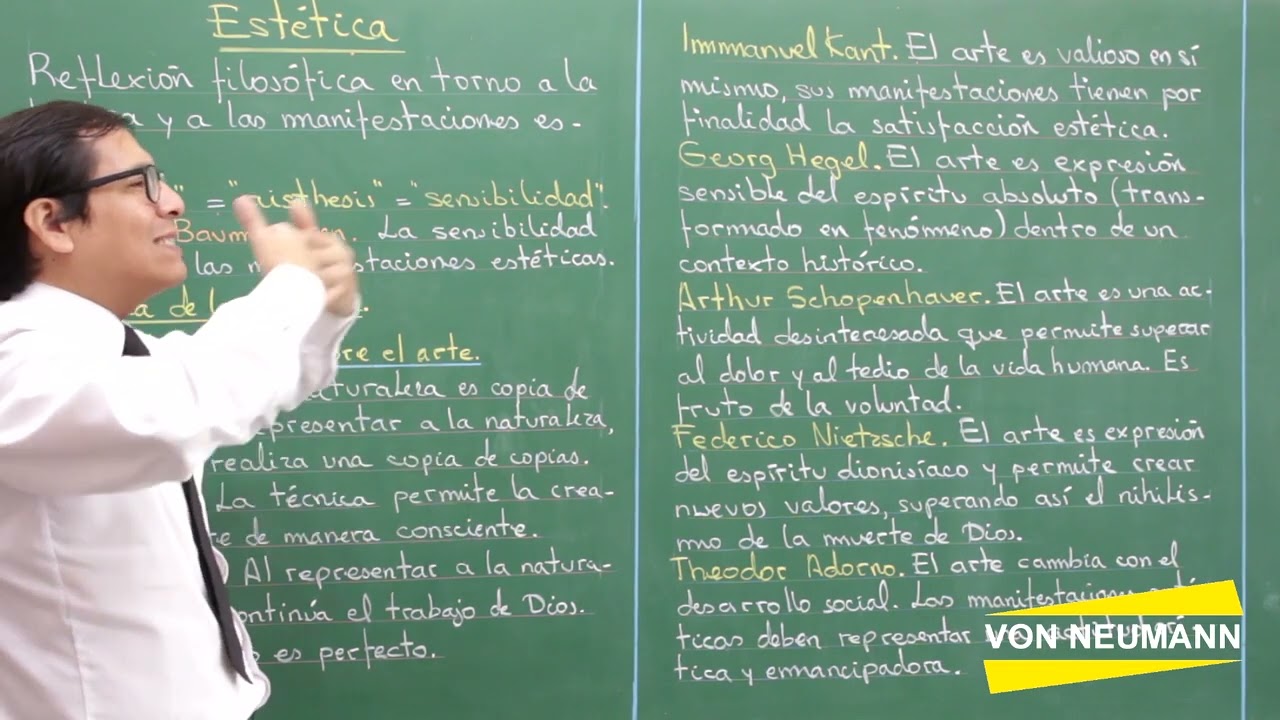 Estética
Reflexión filosófica en torno a la
y a las manifestaciones es-
= "aisthesis" = "sensibilidad".
La sensibilidad
las estéticas.
de
el arte.
naturaleza es copia de
representar a la naturaleza,
realiza una copia de copias.
La técnica permite la crea-
de manera consciente.
Al representar a la natura-
continúa el trabajo de Dios.
es perfecto.
Immanuel Kant. El arte es valioso en sí
mismo, sus manifestaciones tienen por
finalidad la satisfacción estética.
Georg Hegel. El arte es expresión
sensible del espíritu absoluto (trans-
formado en fenómeno) dentro de un
contexto histórico.
Arthur Schopenhauer. El arte es una ac-
tividad desinteresada que permite superar
al dolor y al tedio de la vida humana. Es
fruto de la voluntad.
Federico Nietzsche. El arte es expresión
del espíritu dionisíaco y permite crear
nuevos valores, superando así el nihilis-
mo de la muerte de Dios.
Theodor Adorno. El arte cambia con el
desarrollo social. Las manifestaciones
ticas deben representar
tica y emancipadora.
VON NEUMANN